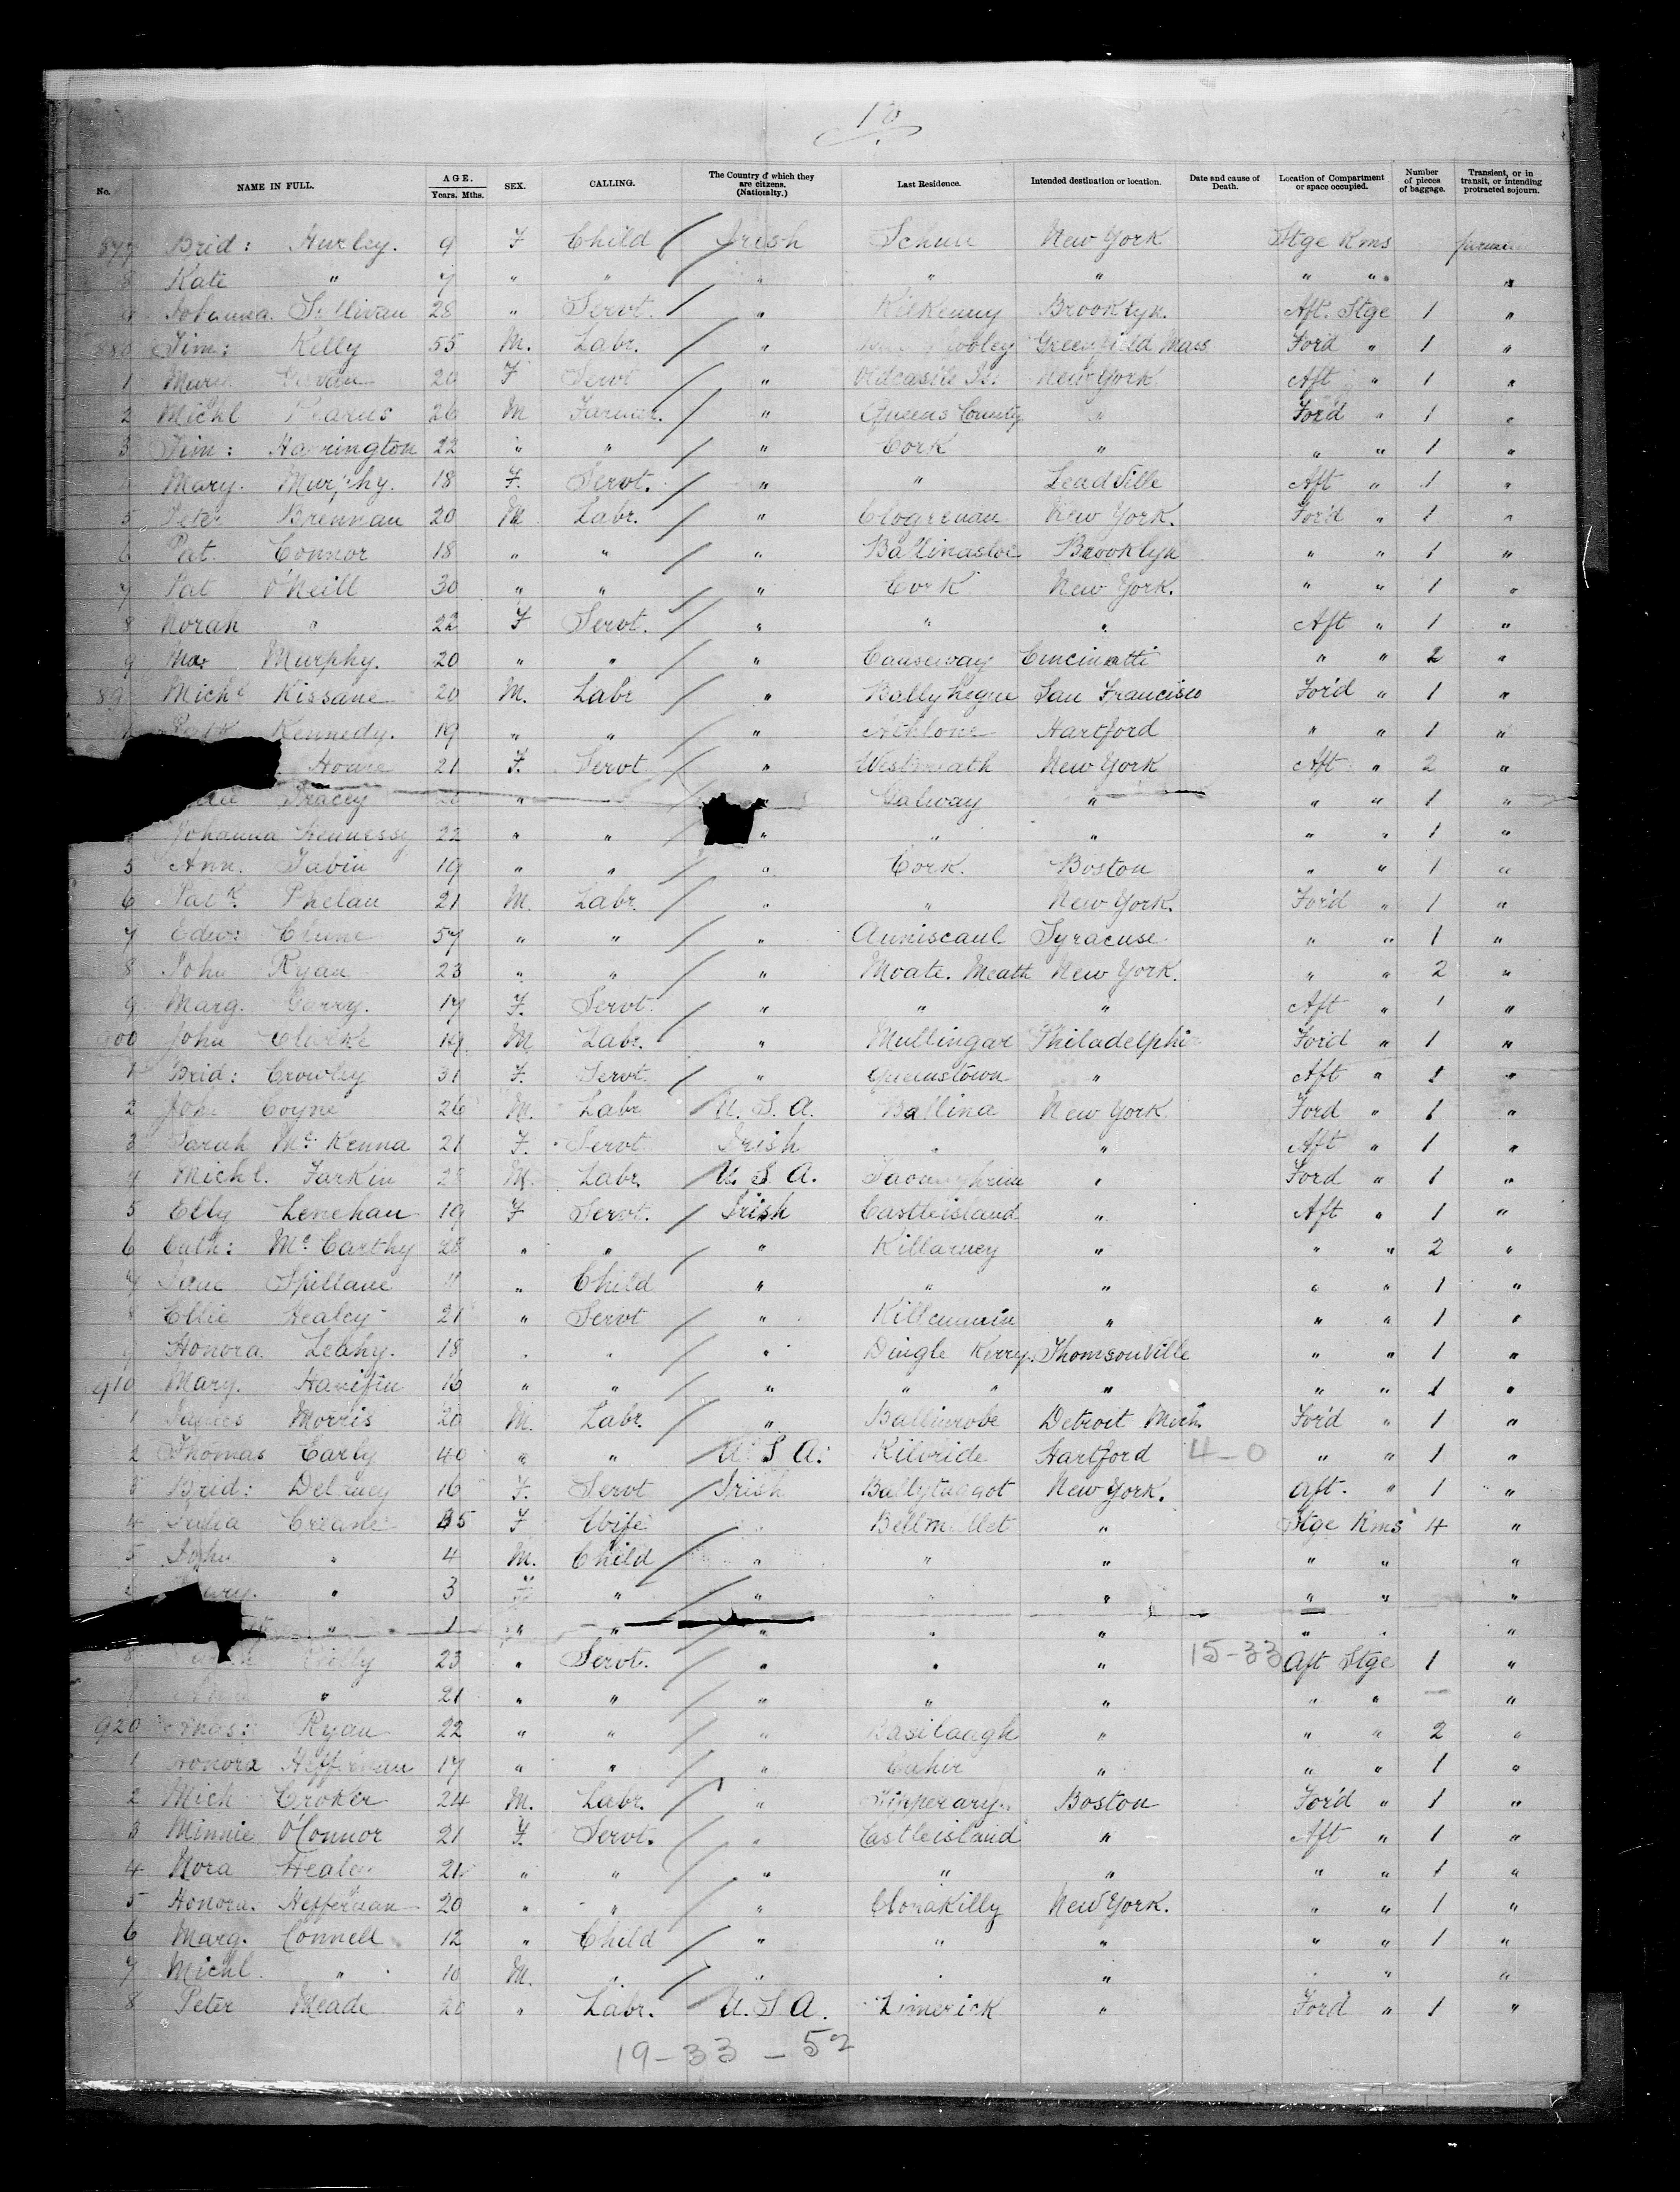 10
No. NAME IN FULL. AGE. Years. Mths. SEX. CALLING. The Country of which they are citizens. (Nationality.) Last Residence. Intended destination or location. Date and cause of Death. Location of Compartment or space occupied. Number of pieces of baggage. Transient, or in transit, or intending protracted sojourn.
877 Brid: Hurley. 9 F Child / Irish New York Stge Rms
8 Kate " 7 " " / " " " " " "
Johanna Sullivan 28 " Servt. / " Kilkenny Brooklyn. Aft. Stge 1 "
880 Tim: Kelly 55 M. Labr. / " Greenfield Mass Ford " 1 "
1 20 F Servt / " Oldcastle New York Aft " 1 "
2 Michl Kearns 26 M Farmer. / " Queens County " Ford " 1 "
3 Tim: Harrington 22 " " / " Cork " " " 1 "
Mary. Murphy. 18 F. Servt. / " " Leadville Aft " 1 "
5 Peter Brennan 20 M Labr. / " Clogrenan New York. Ford " 1 "
6 Pat. Connor 18 " " / " Ballinasloe Brooklyn " " 1 "
7 Pat O'Neill 30 " " / " Cork New York. " " 1 "
8 Norah " 22 F Servt. / " " " Aft " 1 "
9 Murphy. 20 " " / " Causeway Cincinatti " " 2 "
89 Michl Kissane 20 M. Labr / " Ballyhegue San Francisco Ford " 1 "
Patk Kennedy. 19 " " / " Athlone Hartford " " 1 "
21 F. Servt / " Westmeath New York Aft " 2 "
Tracey " / " Galway " " " 1 "
Johanna Hennessy 22 " " " " " " " 1 "
5 Ann. Tabin 19 " " / " Cork. Boston " " 1 "
6 Patk. Phelan 21 M. Labr. / " " New York. Ford " 1 "
7 Edw: Clune 57 " " / " Anniscaul Syracuse " " 1 "
8 John Ryan 23 " " / " Moate. Meath New York. " " 2 "
9 Marg. Garry. 17 F. Servt. / " " " Aft " 1 "
900 John Clarke 19 M Labr. / " Mullingar Philadelphia Ford " 1 "
1 Brid: Crowley 31 F. Servt. / " Queenstown " Aft " 1 "
2 John Coyne 26 M. Labr / U. S. A. Ballina New York Ford " 1 "
3 Sarah McKenna 21 F. Servt Irish " " Aft " 1 "
4 Michl. Farkin M. Labr. / U. S. A. " Ford " 1 "
5 Elly Lenehan 19 F Servt. / Irish Castleisland " Aft " 1 "
6 Cath: McCarthy 28 " " / " Killarney " " " 2 "
7 Jane Spillane 11 " Child / " " " " " 1 "
8 Ellie Healey 21 " Servt / " " " " 1 "
9 Honora Leahy. 18 " " / " Dingle Kerry. Thomsonville " " 1 "
910 Mary. Havifin 16 " " / " " " " " " 1 "
1 James Morris 20 M. Labr. / " Ballinrobe Detroit Mich. Ford " 1 "
2 Thomas Early 40 " " / U. S. A. Kilbride Hartford 4-0 " " 1 "
3 Brid: Delaney 16 F. Servt / Irish Ballyraggot New York. Aft. " 1 "
4 Julia Creane 35 F Wife " Bellmullet " Stge Rms 4 "
5 John " 4 M. Child / " " " " " "
" 3 F " / " " " " " "
" 1 " " / " " " " " "
8 23 " Servt. / " " " 15-33 Aft Stge 1 "
" 21 " " / " " " " " — "
920 Ryan 22 " " / " " " " 2 "
1 Honora Heffernan 17 " " / " Cahir " " " 1 "
2 Mich Croker 24 M. Labr. / " Tipperary. Boston Ford " 1 "
3 Minnie O'Connor 21 F. Servt. / " Castleisland " Aft " 1 "
4 Nora Healey 21 " " / " " " " " 1 "
5 Honora. Heffernan 20 " " / " Clonakilly New York. " " 1 "
6 Marg. Connell 12 " Child / " " " " " 1 "
7 Michl. " 10 M. " / " " " " " "
8 Peter Meade 20 " Labr. / U. S. A. Limerick " Ford " 1 "
19-33-52